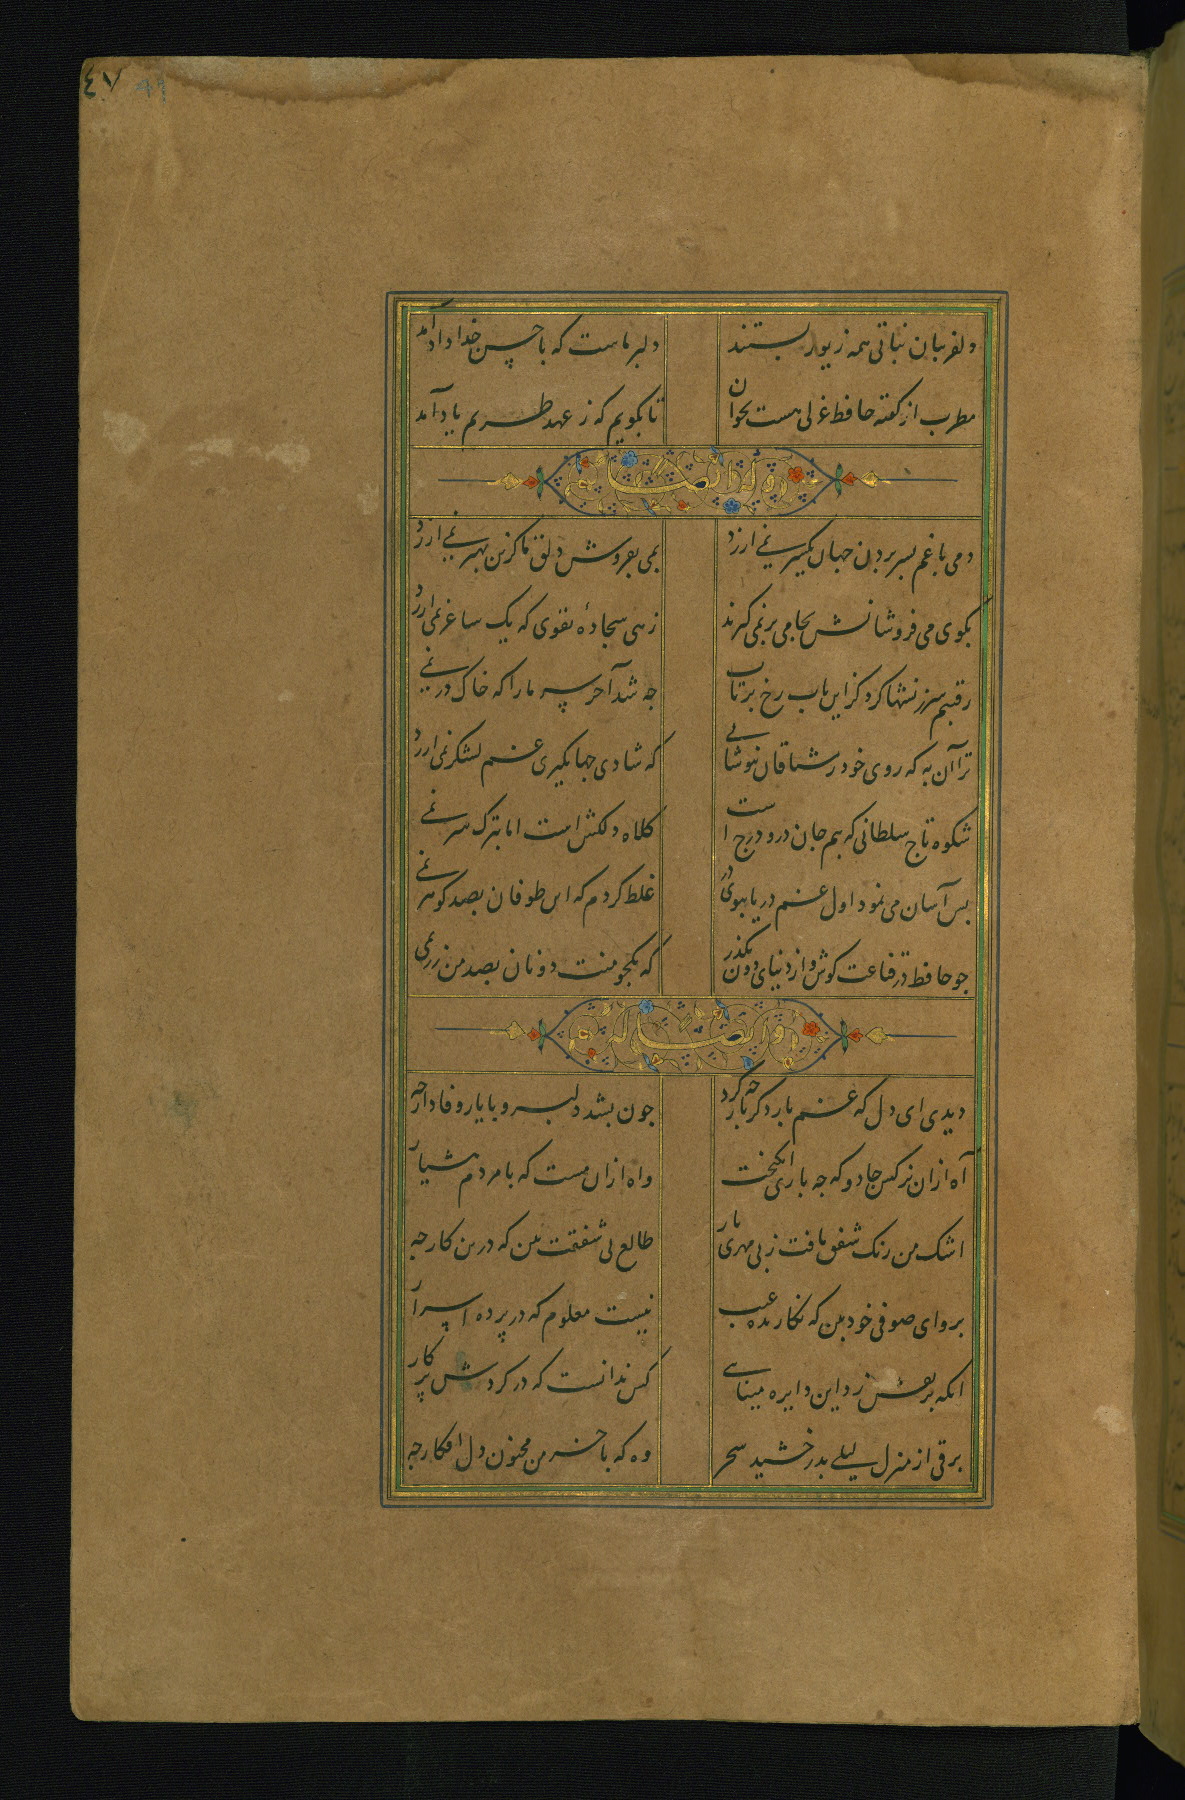 ٤٧
دلفریبان نباتی همه زیور بستند
دلبر ماست که با حسن خداداد آمد
مطرب از کفته حافظ غزلی مست بخوان
تا بکویم که ز عهد طربم یاد آمد
وله ایضا
دمی با غم بسر بردن جهان یکسر نمی ارزد
بمی بفروش دلق ما کزین بهتر نمی ارزد
بکوی می فروشانش بجامی برنمی کیرند
زهی سجادهٔ تقوی که یک ساغر نمی ارزد
رقیبم سرزنشها کرد کزاین باب رخ برتاب
جه شد آخر سر ما را که خاک در نمی
ترا آن به که روی خود ز مشتاقان بپوشانی
که شادی جهانکیری غم لشکر نمی ارزد
شکوه تاج سلطانی که بیم جان درو درج است
کلاه دلکش است اما بترک سر نمی
بس آسان می نمود اول غم دریا ببوی در
غلط کردم که این طوفان بصد کوهر نمی
جو حافظ در قناعت کوش و از دنیای دون بکذر
که یکجو منت دونان بصد من زر نمی
وله ایضا
دیدی ای دل که غم یار دکر بار جه کرد
جون بشد دلبر و با یار وفادار جه
آه ازان نرکس جادو که جه بازی انکیخت
واه ازان مست که با مردم هشیار
اشک من رنک شفق یافت ز بی مهری یار
طالع بی شفقت بین که درین کار جه
برو ای صوفی خودبین که نکارنده غیب
نیست معلوم که در پرده اسرار
انکه پرنقش زد این دایره مینایی
کس ندانست که در کردش پرکار
برقی از منزل لیلی بدرخشید سحر
وه که با خرمن مجنون دل افکار جه